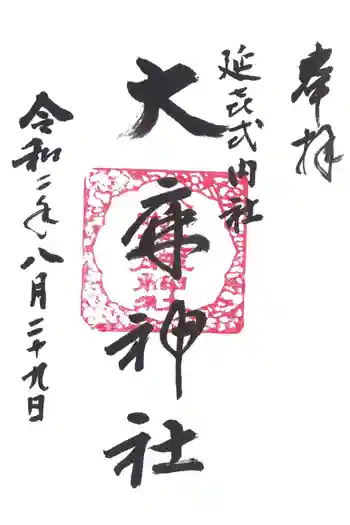 奉拝
延㐂式内社
大庭神社
令和二年八月二十九日